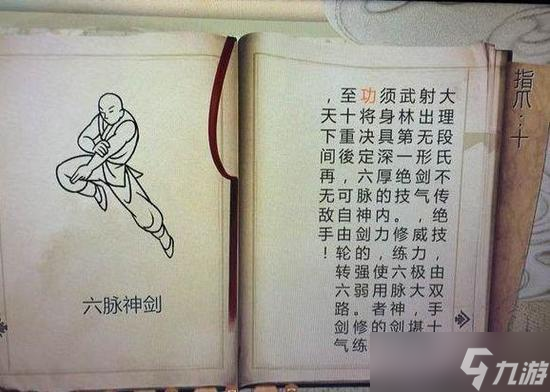 六脉神剑
大理段氏不传绝技，由双手十
射出无形剑气，威力极大，堪
武林第一绝技。修练六脉神剑
须身具深厚的内力，使用者的
功将决定六脉神剑的强弱。修练
至十重後，可自由轮转六路剑气
，天下间再无敌手！
指爪：十
九游